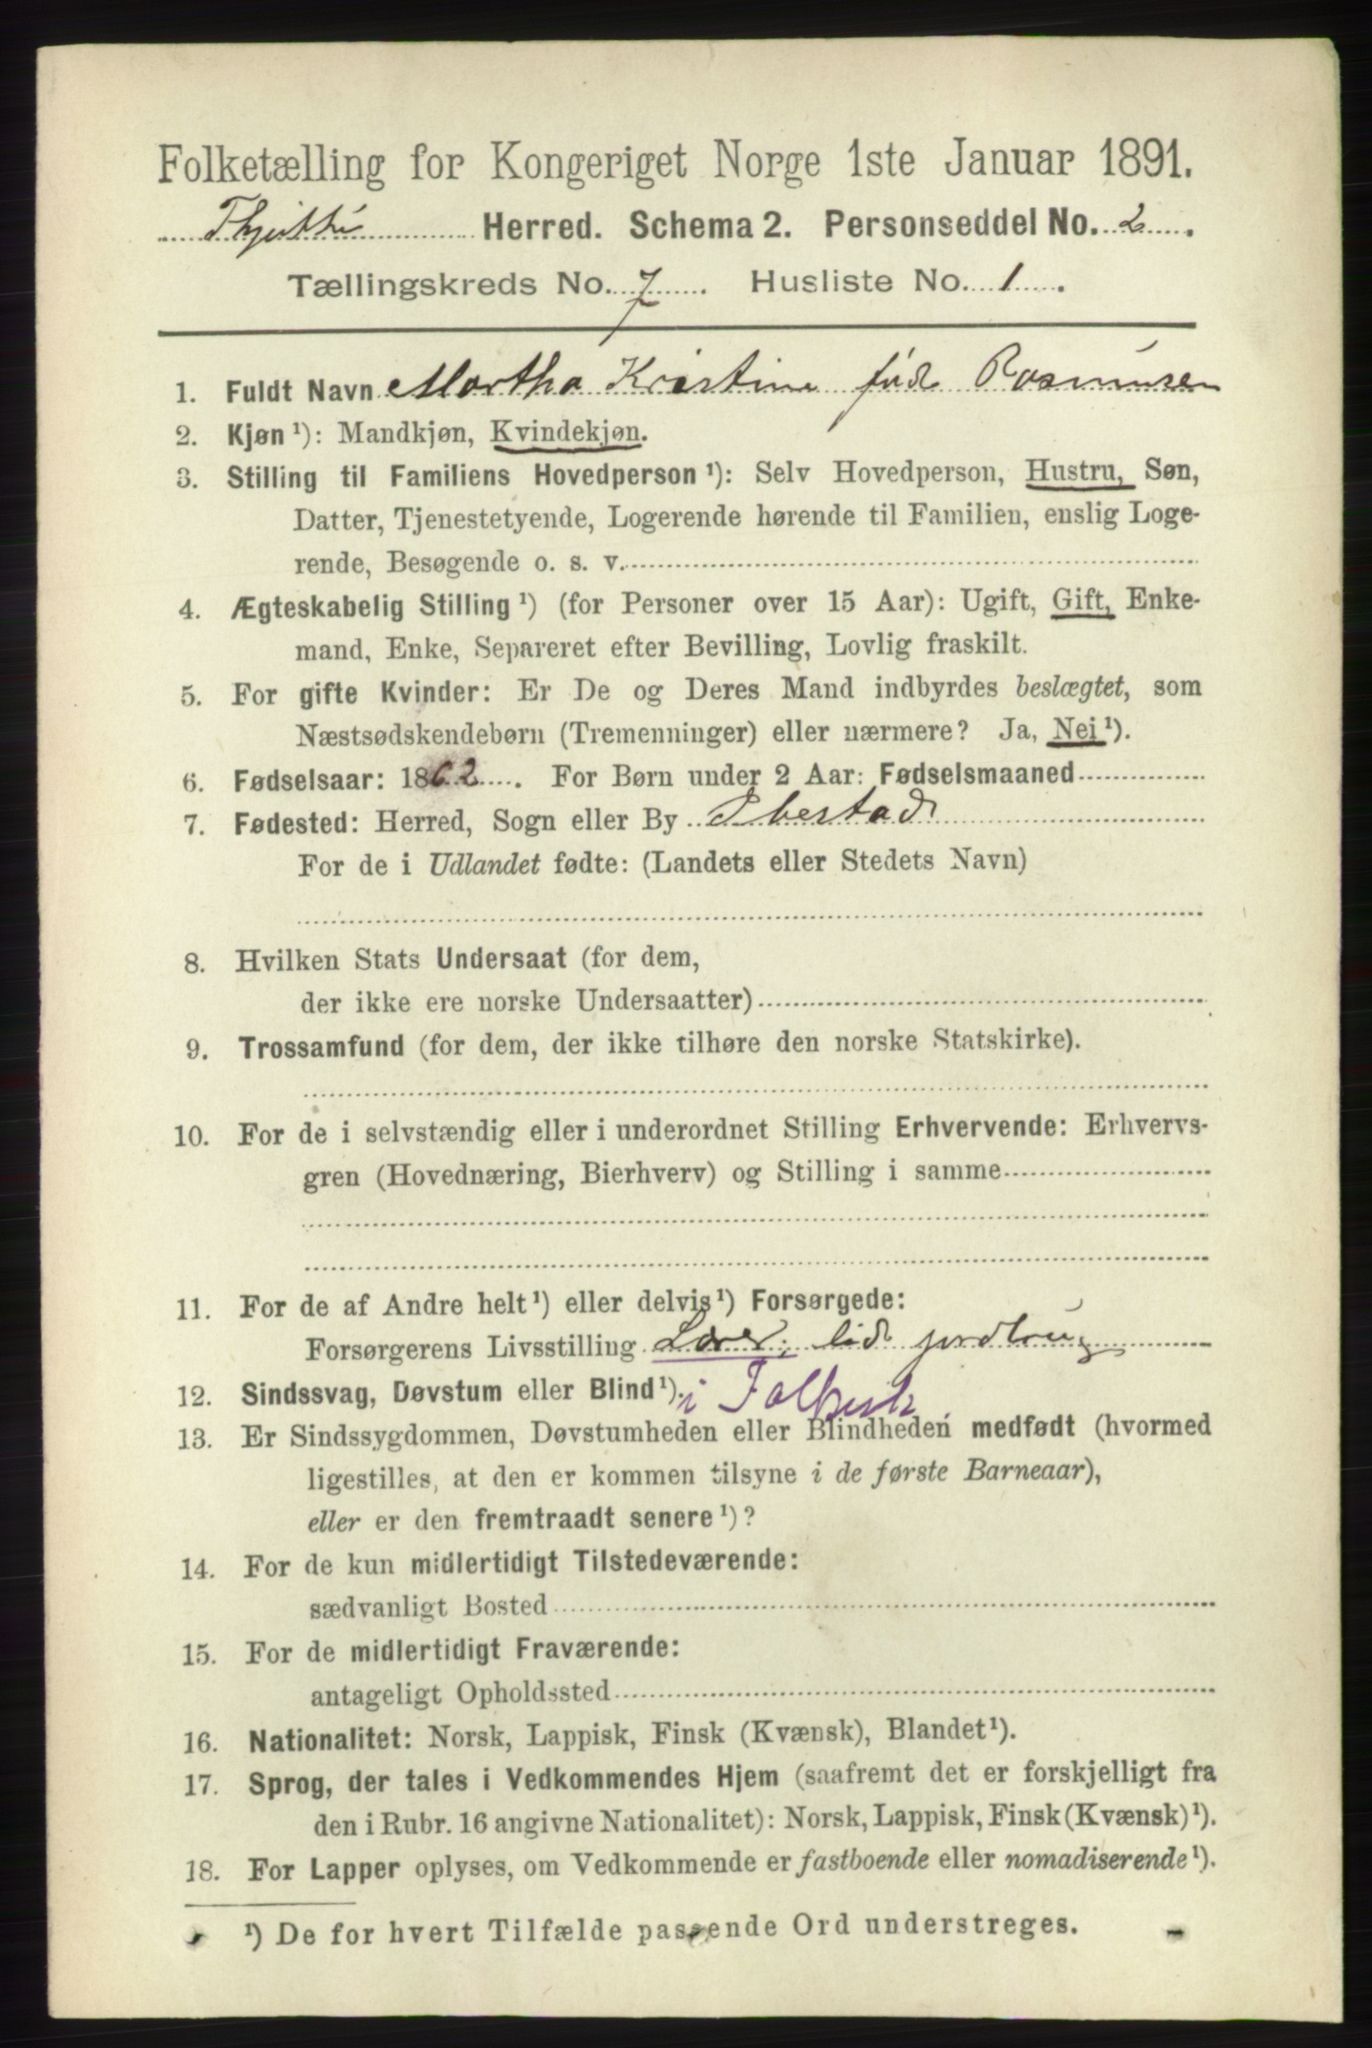 Folketælling for Kongeriget Norge 1ste Januar 1891.
Herred. Schema 2. Personseddel No. 2.
Tællingskreds No. 7. Husliste No. 1.
1. Fuldt Navn Martha Kristine fød Rasmusen
2. Kjøn ¹): Mandkjøn, Kvindekjøn.
3. Stilling til Familiens Hovedperson ¹): Selv Hovedperson, Hustru, Søn,
Datter, Tjenestetyende, Logerende hørende til Familien, enslig Loge-
rende, Besøgende o. s. v.
4. Ægteskabelig Stilling ¹) (for Personer over 15 Aar): Ugift, Gift, Enke-
mand, Enke, Separeret efter Bevilling, Lovlig fraskilt.
5. For gifte Kvinder: Er De og Deres Mand indbyrdes beslægtet, som
Næstsødskendebørn (Tremenninger) eller nærmere? Ja, Nei ¹).
6. Fødselsaar: 1862. For Børn under 2 Aar: Fødselsmaaned
7. Fødested: Herred, Sogn eller By Ibestad
For de i Udlandet fødte: (Landets eller Stedets Navn)
8. Hvilken Stats Undersaat (for dem,
der ikke ere norske Undersaatter)
9. Trossamfund (for dem, der ikke tilhøre den norske Statskirke).
10. For de i selvstændig eller i underordnet Stilling Erhvervende: Erhvervs-
gren (Hovednæring, Bierhverv) og Stilling i samme
11. For de af Andre helt ¹) eller delvis ¹) Forsørgede:
Forsørgerens Livsstilling Lærer, lidt jordbrug
12. Sindssvag, Døvstum eller Blind ¹). i Folkesk.
13. Er Sindssygdommen, Døvstumheden eller Blindheden medfødt (hvormed
ligestilles, at den er kommen tilsyne i de første Barneaar),
eller er den fremtraadt senere ¹)?
14. For de kun midlertidigt Tilstedeværende:
sædvanligt Bosted
15. For de midlertidigt Fraværende:
antageligt Opholdssted
16. Nationalitet: Norsk, Lappisk, Finsk (Kvænsk), Blandet ¹).
17. Sprog, der tales i Vedkommendes Hjem (saafremt det er forskjelligt fra
den i Rubr. 16 angivne Nationalitet): Norsk, Lappisk, Finsk (Kvænsk) ¹).
18. For Lapper oplyses, om Vedkommende er fastboende eller nomadiserende ¹).
¹) De for hvert Tilfælde passende Ord understreges.